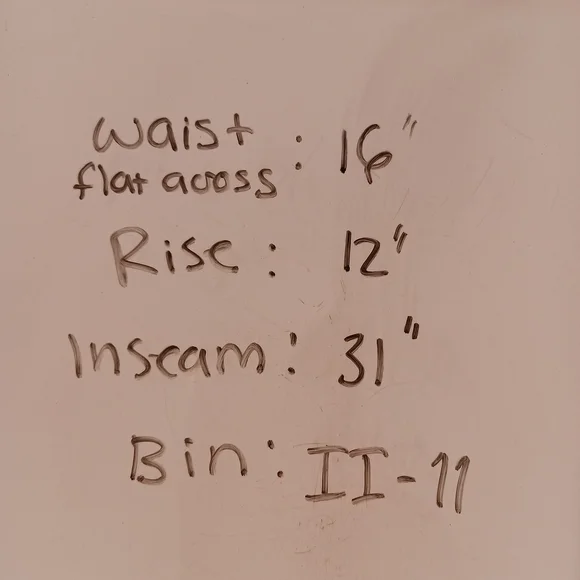 Waist
flat across : 16"
Rise : 12"
Inseam : 31"
Bin : II-11